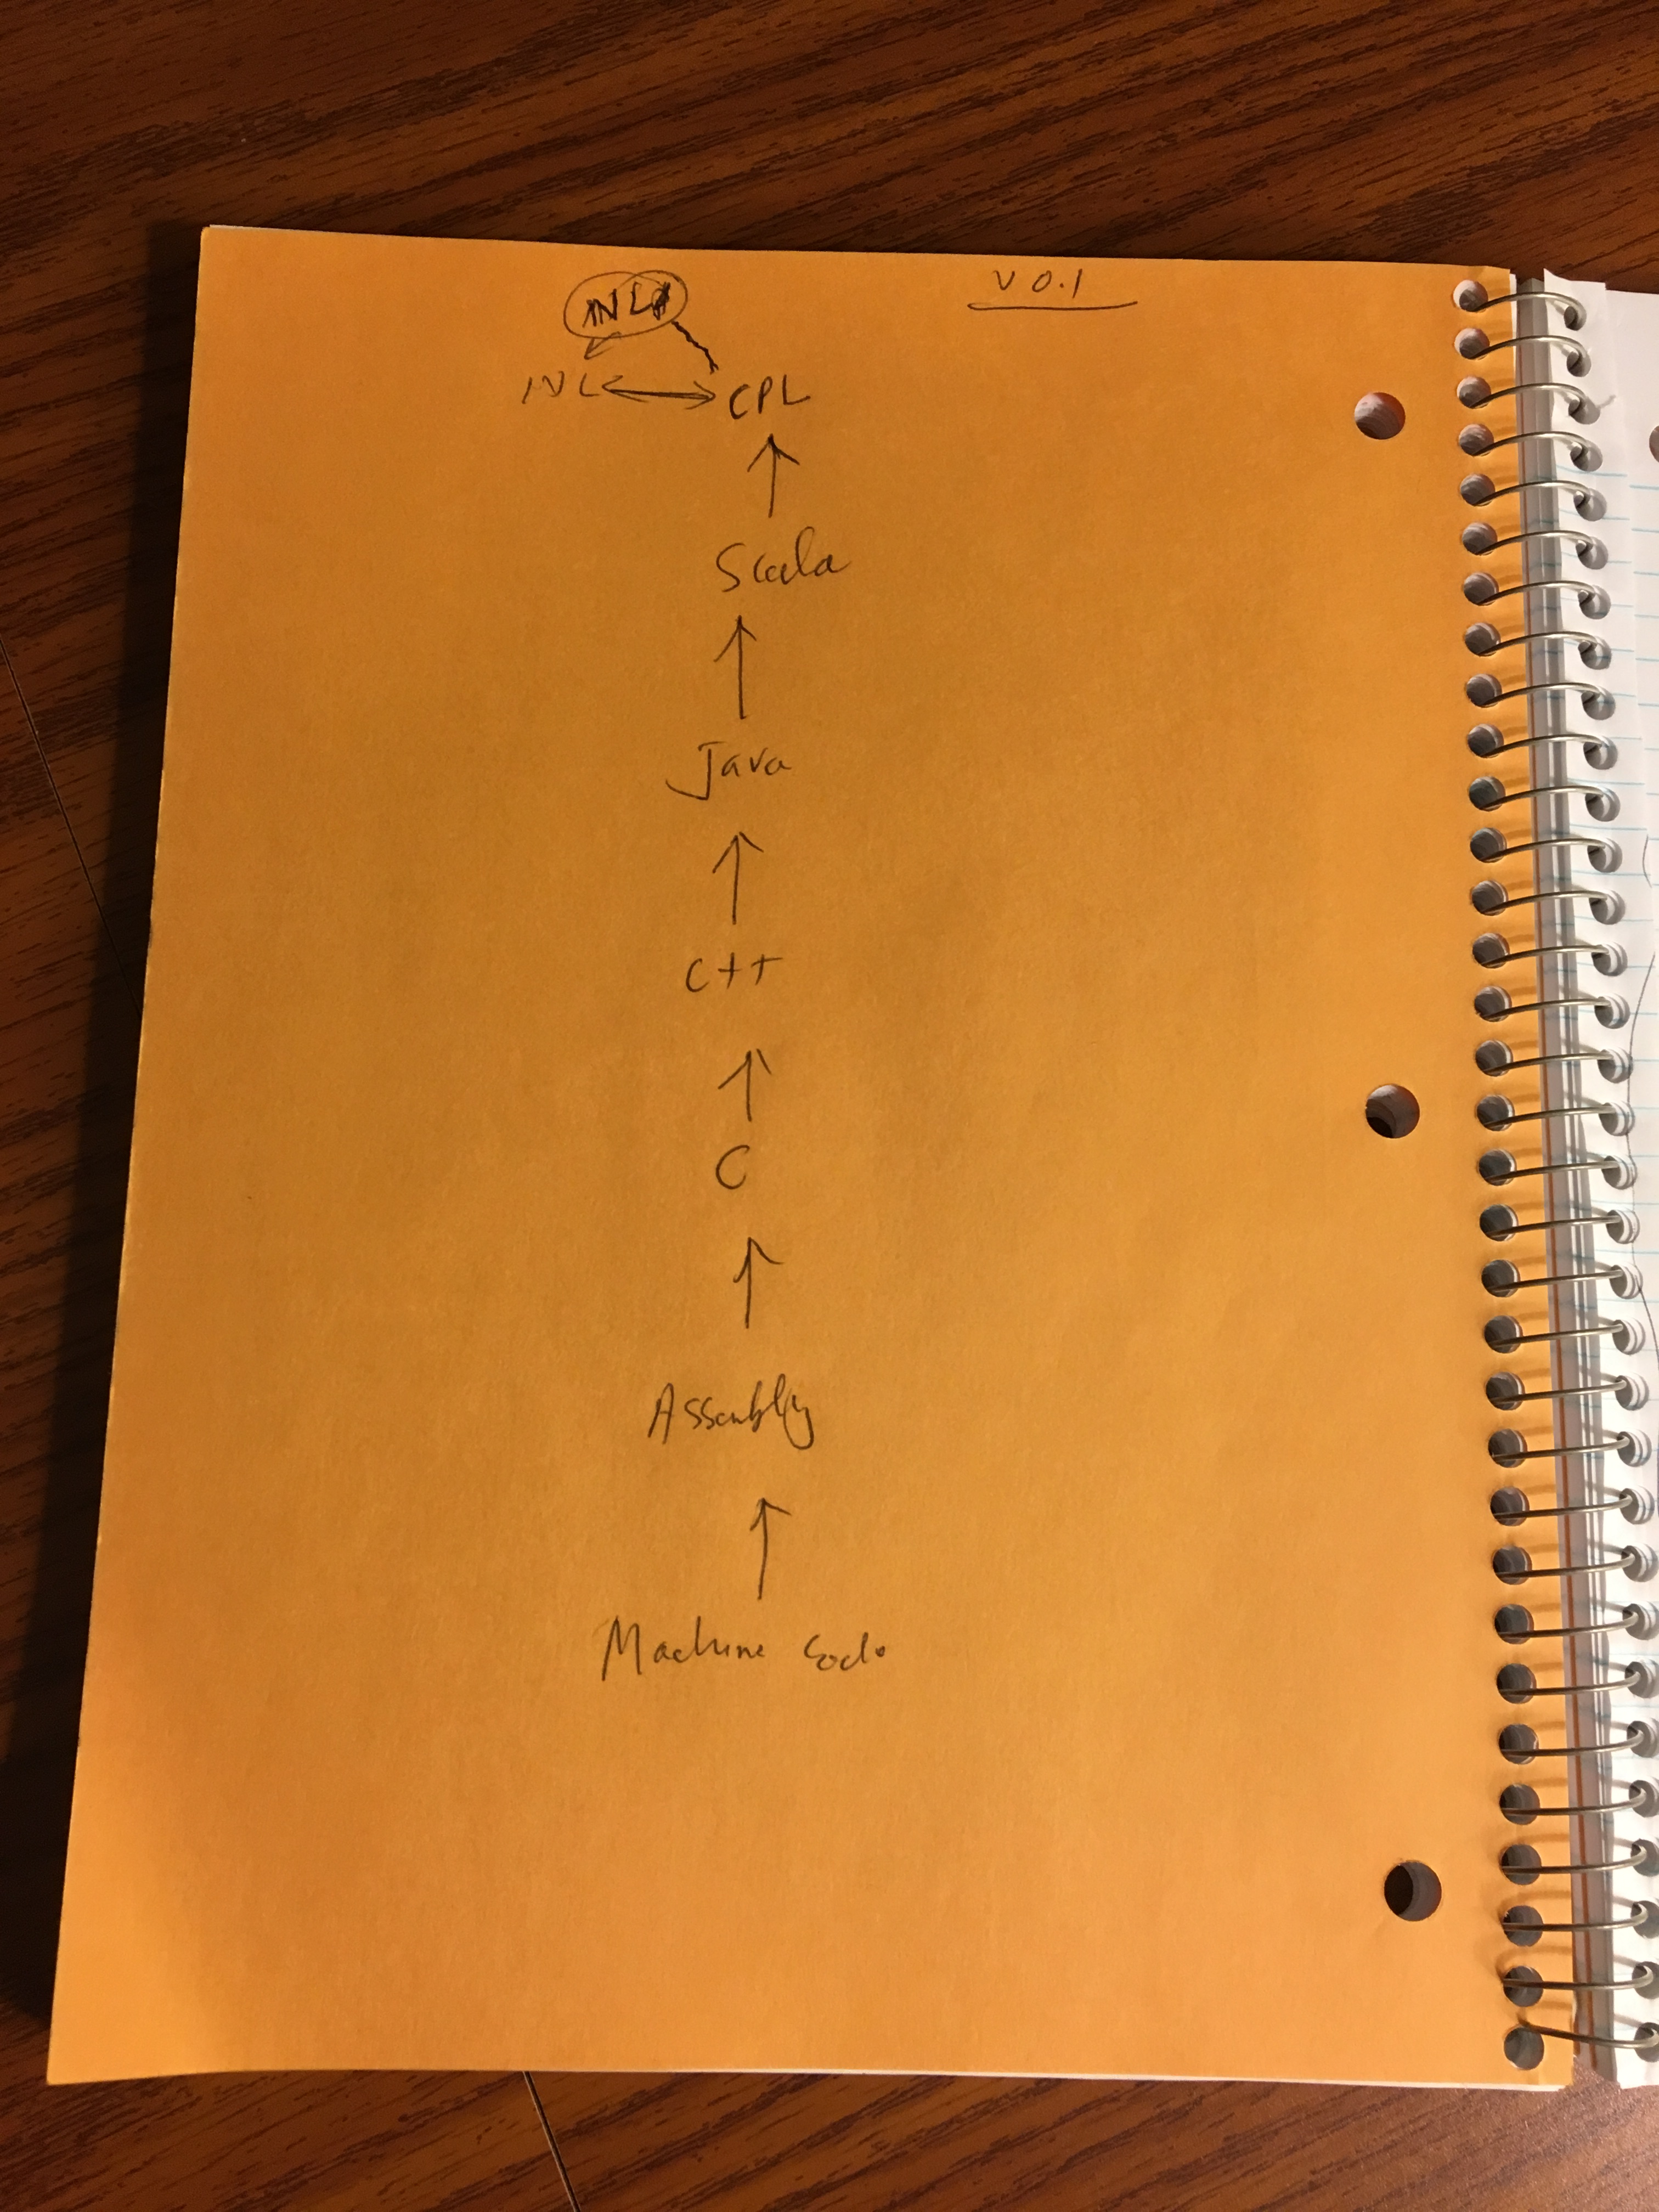 v 0.1
INL CPL
Scala
Java
C++
C
Assembly
Machine code